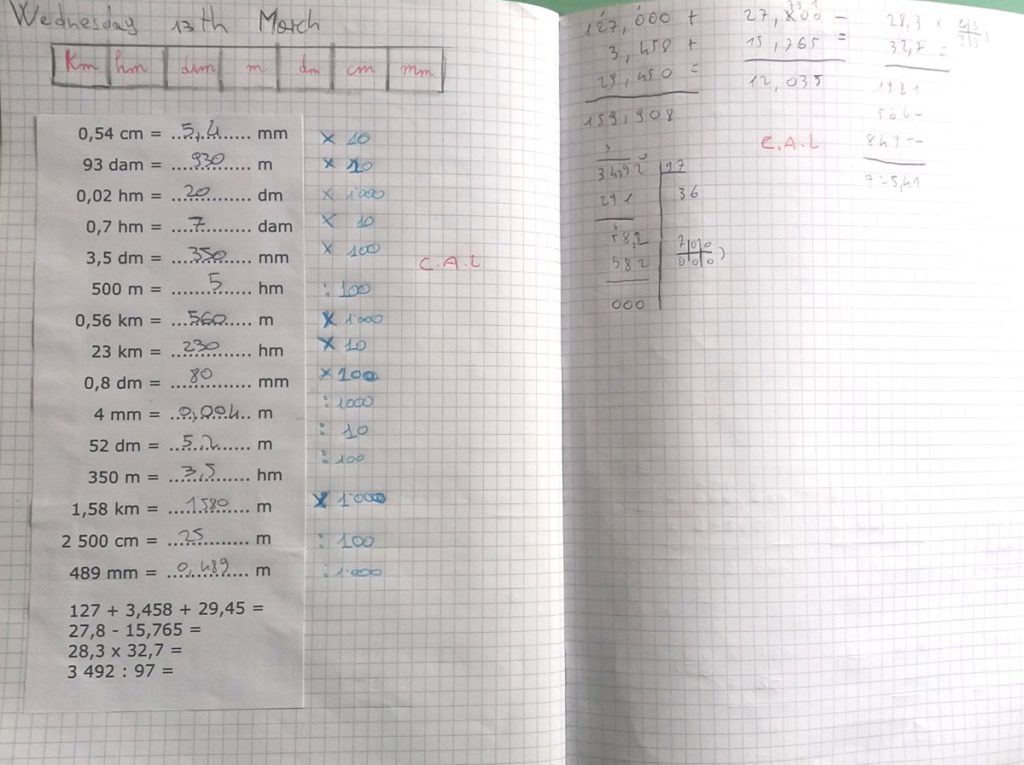 Wednesday 13th March
Km hm dam m dm cm mm
0,54 cm = 5,4 mm × 10
93 dam = 930 m × 10
0,02 hm = 20 dm × 1000
0,7 hm = 7 dam × 10
3,5 dm = 350 mm × 100
500 m = 5 hm : 100
0,56 km = 560 m × 1000
23 km = 230 hm × 10
0,8 dm = 80 mm × 100
4 mm = 0,004 m : 1000
52 dm = 5,2 m : 10
350 m = 3,5 hm : 100
1,58 km = 1580 m × 1.000
2 500 cm = 25 m : 100
489 mm = 0,489 m : 1.000
C.A.L
127 + 3,458 + 29,45 =
27,8 - 15,765 =
28,3 x 32,7 =
3 492 : 97 =
127,000 +
3,458 +
29,450 =
159,908
27,800 -
15,765 =
12,035
28,3 ×
32,7 =
1981
566-
849--
C.A.L
3492 97
291 36
582
582
000